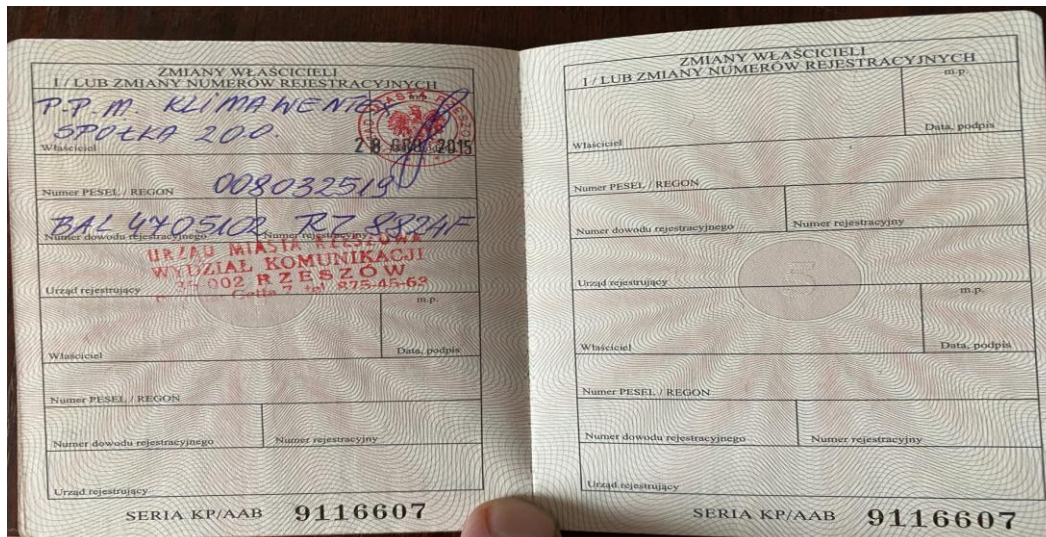 ZMIANY WŁAŚCICIELI
I / LUB ZMIANY NUMERÓW REJESTRACYJNYCH
P.P.M. KLIMAWENTEX
SPÓŁKA ZO.O.
m.p.
28 GRU 2015
Właściciel
Numer PESEL / REGON 008032519
BAL 4705102 RZ 8824F
Numer dowodu rejestracyjnego Numer rejestracyjny
URZĄD MIASTA RZESZOWA
WYDZIAŁ KOMUNIKACJI
35-002 RZESZÓW
7 tel 875-45-63
Urząd rejestrujący
m.p.
Właściciel Data, podpis
Numer PESEL / REGON
Numer dowodu rejestracyjnego Numer rejestracyjny
Urząd rejestrujący
SERIA KP/AAB 9116607
ZMIANY WŁAŚCICIELI
I / LUB ZMIANY NUMERÓW REJESTRACYJNYCH
m.p.
Właściciel Data, podpis
Numer PESEL / REGON
Numer dowodu rejestracyjnego Numer rejestracyjny
3
Urząd rejestrujący
m.p.
Właściciel Data, podpis
Numer PESEL / REGON
Numer dowodu rejestracyjnego Numer rejestracyjny
Urząd rejestrujący
SERIA KP/AAB 9116607